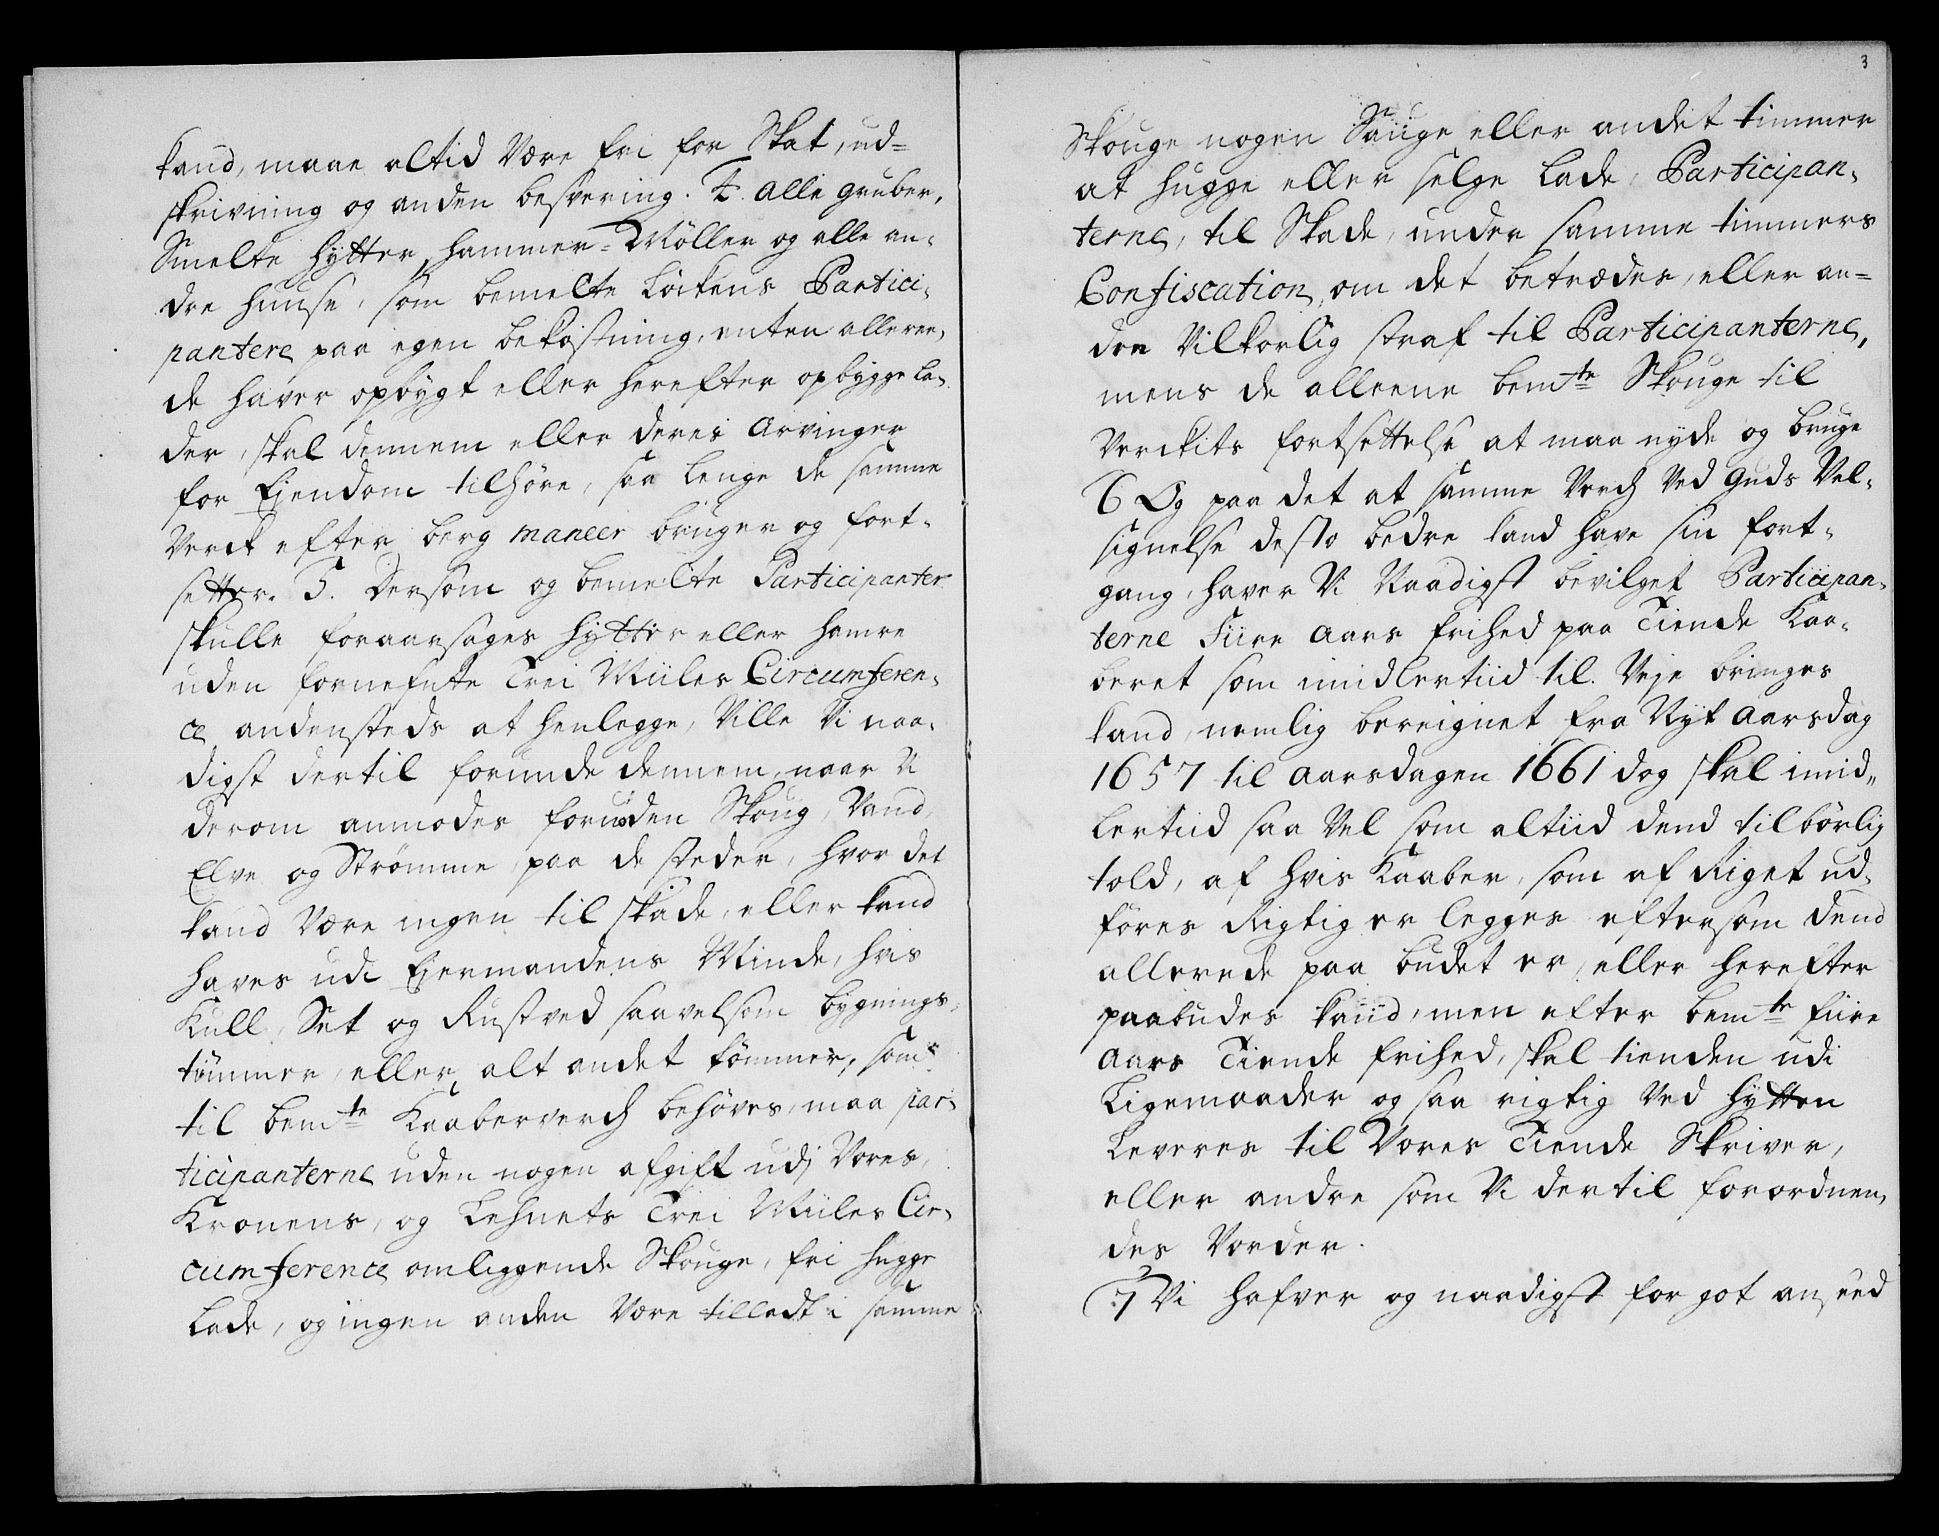 kand, maae altid Være fri for Skat, ud=
skrivning og anden besvering. 4. Alle Gruber,
Smelte Hytter, Hammer=Møller og alle an-
dre Huuse, som bemelte Løckens Partici-
pantere paa egen bekostning, enten alleree-
de haver opbygt eller herefter opbygge la-
der, skal dennem eller deres Arvinger
for Eiendom tilhöre, saa lenge de samme
Verck efter berg maneer bruger og fort-
setter. 5. Dersom og bemelte Participanter
skulle foraarsages Hytter eller Hamre
uden fornefnte Trei Miiles Circumferen-
ce andensteds at henlegge, Ville Vi naa-
digst dertil forunde dennem, naar Vi
derom anmodes foruden Skoug, Vand,
Elve og Strømme, paa de steder, hvor det
kand Være ingen til skade, eller kand
haves udi Ejermandens Minde, hvis
Kull, Set og Rustved saavelsom bygnings-
tømmer, eller alt andet tømmer, som
til bemte Kaaberverch behöves, maa par-
ticipanterne uden nogen afgift udj Vores,
Kronens, og Lehnets Trei Miiles Cir-
cumference omliggende Skouge, fri hugge
Lade, og ingen anden Være tilladt i samme
3
Skouge nogen Sauge eller andet timmer
at hugge eller selge lade, Participan-
terne, til Skade, under samme timmers
Confiscation, om det betrædes, eller an=
den Vilkorlig straf til Participanterne,
mens de alleene bemte Skouge til
Verckits fortsettelse at maa nyde og bruge
6 Og paa det at samme Verch Ved Guds Vel-
signelse desto bedre kand have sin fort-
gang, haver Vi Naadigst bevilget Participan-
terne Fiire Aars frihed paa Tiende Kaa-
beret som imidlertiid til Veje bringes
kand, nemlig bereignet fra Nyt Aarsdag
1657 til Aarsdagen 1661 dog skal imid-
lertiid saa Vel som altiid dend tilbørlig
told, af hvis Kaaber, som af Riget ud-
föres Rigtig er legges eftersom dend
allerede paa budet er, eller herefter
paabudes kand, men efter bemte fiire
Aars Tiende frihed, skal tienden udi
Ligemaader og saa rigtig Ved Hytten
Leveres til Vores Tiende Skriver,
eller andre som Vi dertil forordnen-
des Vorder.
7 Vi hafver og naadigst for got anseed